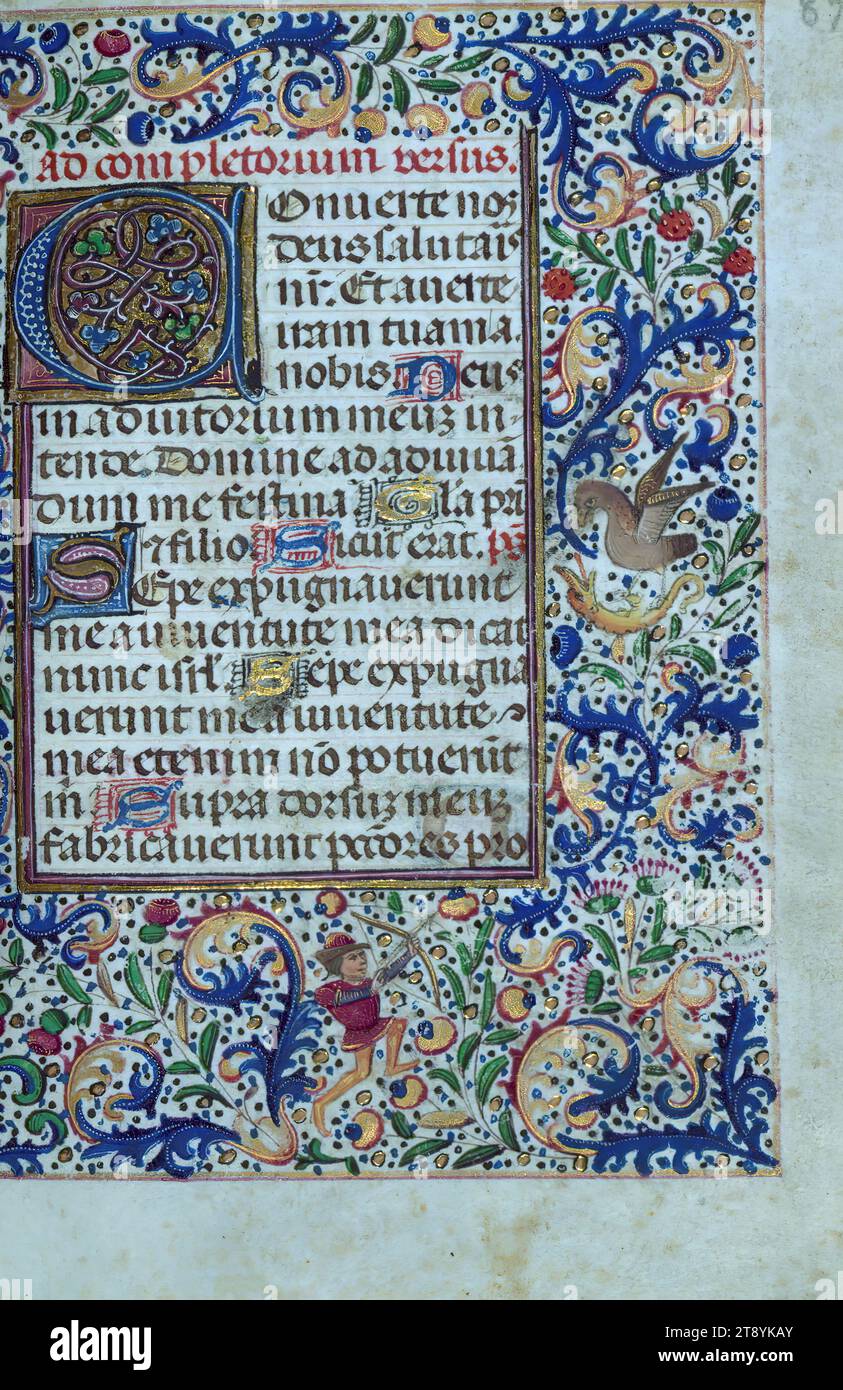 87
ad completorium versus.
Converte nos
deus salutaris
nr̄. Et averte
iram tuam a
nobis Deus
in adiutorium meuʒ in-
tende Domine ad adiuuā
dum me festina Gl̄a pr̄i
⁊ filio Sicut erat. ps̄
Sepe expugnauerunt
me a iuuentute mea dicat
nunc isrl̄. Sepe expugna
uerunt me a iuuentute
mea etenim nō potuerūt
m̄ Supra dorsuʒ meuʒ
fabricauerunt pctōres pro
alamy
alamy
Image ID: 2T8YKAY
www.alamy.com